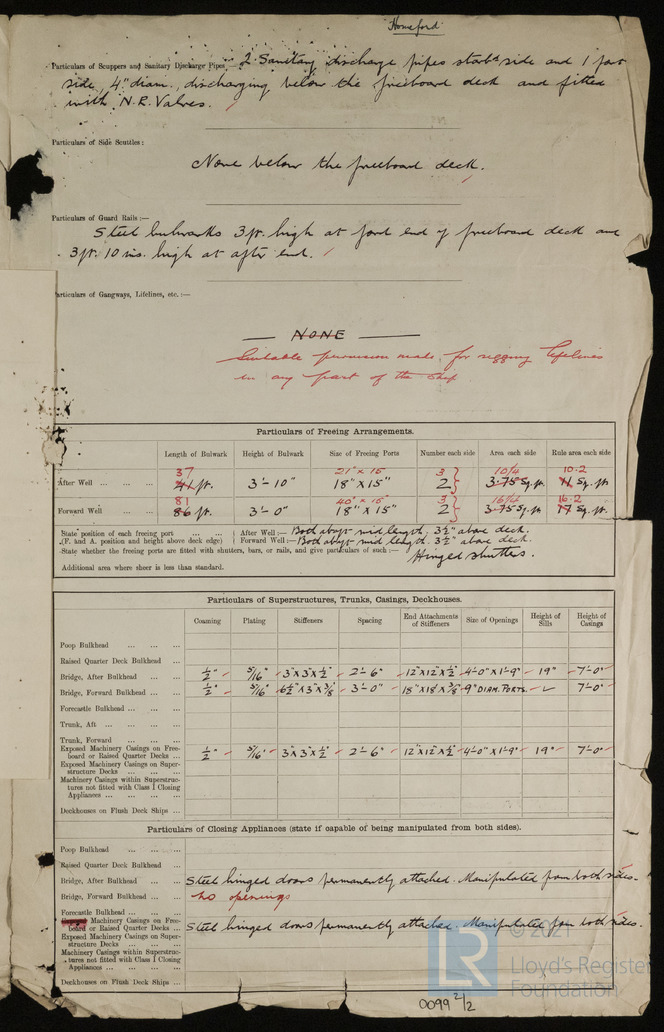 Homeford
Particulars of Scuppers and Sanitary Discharge Pipes :— 2 Sanitary discharge pipes starbd side and 1 port
side, 4" diam., discharging below the freeboard deck and fitted
with N.R. Valves.
Particulars of Side Scuttles :
None below the freeboard deck.
Particulars of Guard Rails :—
Steel bulwarks 3 ft. high at ford end of freeboard deck and
3 ft. 10 ins. high at after end.
Particulars of Gangways, Lifelines, etc. :—
— NONE —
Suitable provision made for rigging lifelines
in any part of the ship
Particulars of Freeing Arrangements.
Length of Bulwark Height of Bulwark Size of Freeing Ports Number each side Area each side Rule area each side
37 21" x 15" 3 10/4 10.2
After Well ... ... ... 41 ft. 3'-10" 18" x 15" 2 3.75 Sq. ft. 11 Sq. ft.
81 40" x 15" 3 16/4 16.2
Forward Well ... ... 86 ft. 3'-0" 18" x 15" 2 3.75 Sq. ft. 17 Sq. ft.
State position of each freeing port ... ... After Well :— Both abaft mid length. 3½" above deck.
(F. and A. position and height above deck edge) Forward Well :— Both abaft mid length. 3½" above deck.
State whether the freeing ports are fitted with shutters, bars, or rails, and give particulars of such :— Hinged shutters.
Additional area where sheer is less than standard.
Particulars of Superstructures, Trunks, Casings, Deckhouses.
Coaming Plating Stiffeners Spacing End Attachments of Stiffeners Size of Openings Height of Sills Height of Casings
Poop Bulkhead ... ... ...
Raised Quarter Deck Bulkhead ...
Bridge, After Bulkhead ... ... ½" 5/16" 3"x3"x½" 2'-6" 12"x12"x½" 4'-0"x1'-9" 19" 7'-0"
Bridge, Forward Bulkhead ... ... ½" 5/16" 6½"x3"x3/8 3'-0" 18"x18"x3/8 9" DIAM. PORTS. 7'-0"
Forecastle Bulkhead ... ... ...
Trunk, Aft ... ... ... ...
Trunk, Forward ... ... ...
Exposed Machinery Casings on Free-
board or Raised Quarter Decks ... ½" 5/16" 3"x3"x½" 2'-6" 12"x12"x½" 4'-0"x1'-9" 19" 7'-0"
Exposed Machinery Casings on Super-
structure Decks ... ... ...
Machinery Casings within Superstruc-
tures not fitted with Class I Closing
Appliances ... ... ... ...
Deckhouses on Flush Deck Ships ...
Particulars of Closing Appliances (state if capable of being manipulated from both sides).
Poop Bulkhead ... ... ...
Raised Quarter Deck Bulkhead ...
Bridge, After Bulkhead ... ... Steel hinged doors permanently attached. Manipulated from both sides.
Bridge, Forward Bulkhead ... ... no openings
Forecastle Bulkhead ... ... ...
Machinery Casings on Free-
board or Raised Quarter Decks ... Steel hinged doors permanently attached. Manipulated from both sides.
Exposed Machinery Casings on Super-
structure Decks ... ... ...
Machinery Casings within Superstruc-
tures not fitted with Class I Closing
Appliances ... ... ... ...
Deckhouses on Flush Deck Ships ...
LR
© 2021
Lloyd's Register
Foundation
0099 2/2